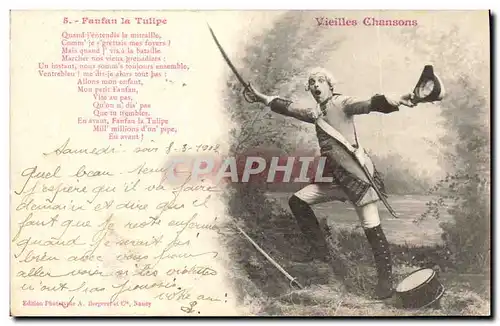 5. - Fanfan la Tulipe
Vieilles Chansons
Quand j'entendis la mitraille,
Comm' je r'grettais mes foyers !
Mais quand j' vis à la bataille
Marcher nos vieux grenadiers :
Un instant, nous somm's toujours ensemble,
Ventrebleu ! me dis-je alors tout bas :
Allons mon enfant,
Mon petit Fanfan,
Vite au pas,
Qu'on n' dis' pas
Que tu trembles.
En avant, Fanfan la Tulipe
Mill' millions d'un' pipe,
En avant !
Samedi soir
Quel beau
J'espère qu'il va faire
demain et dire que il
faut que je reste
quand je serait si
bien avec
aller voir
m'ont pas
votre ami
CPARPHIL
Edition Phototypie A. Bergeret et Cie, Nancy